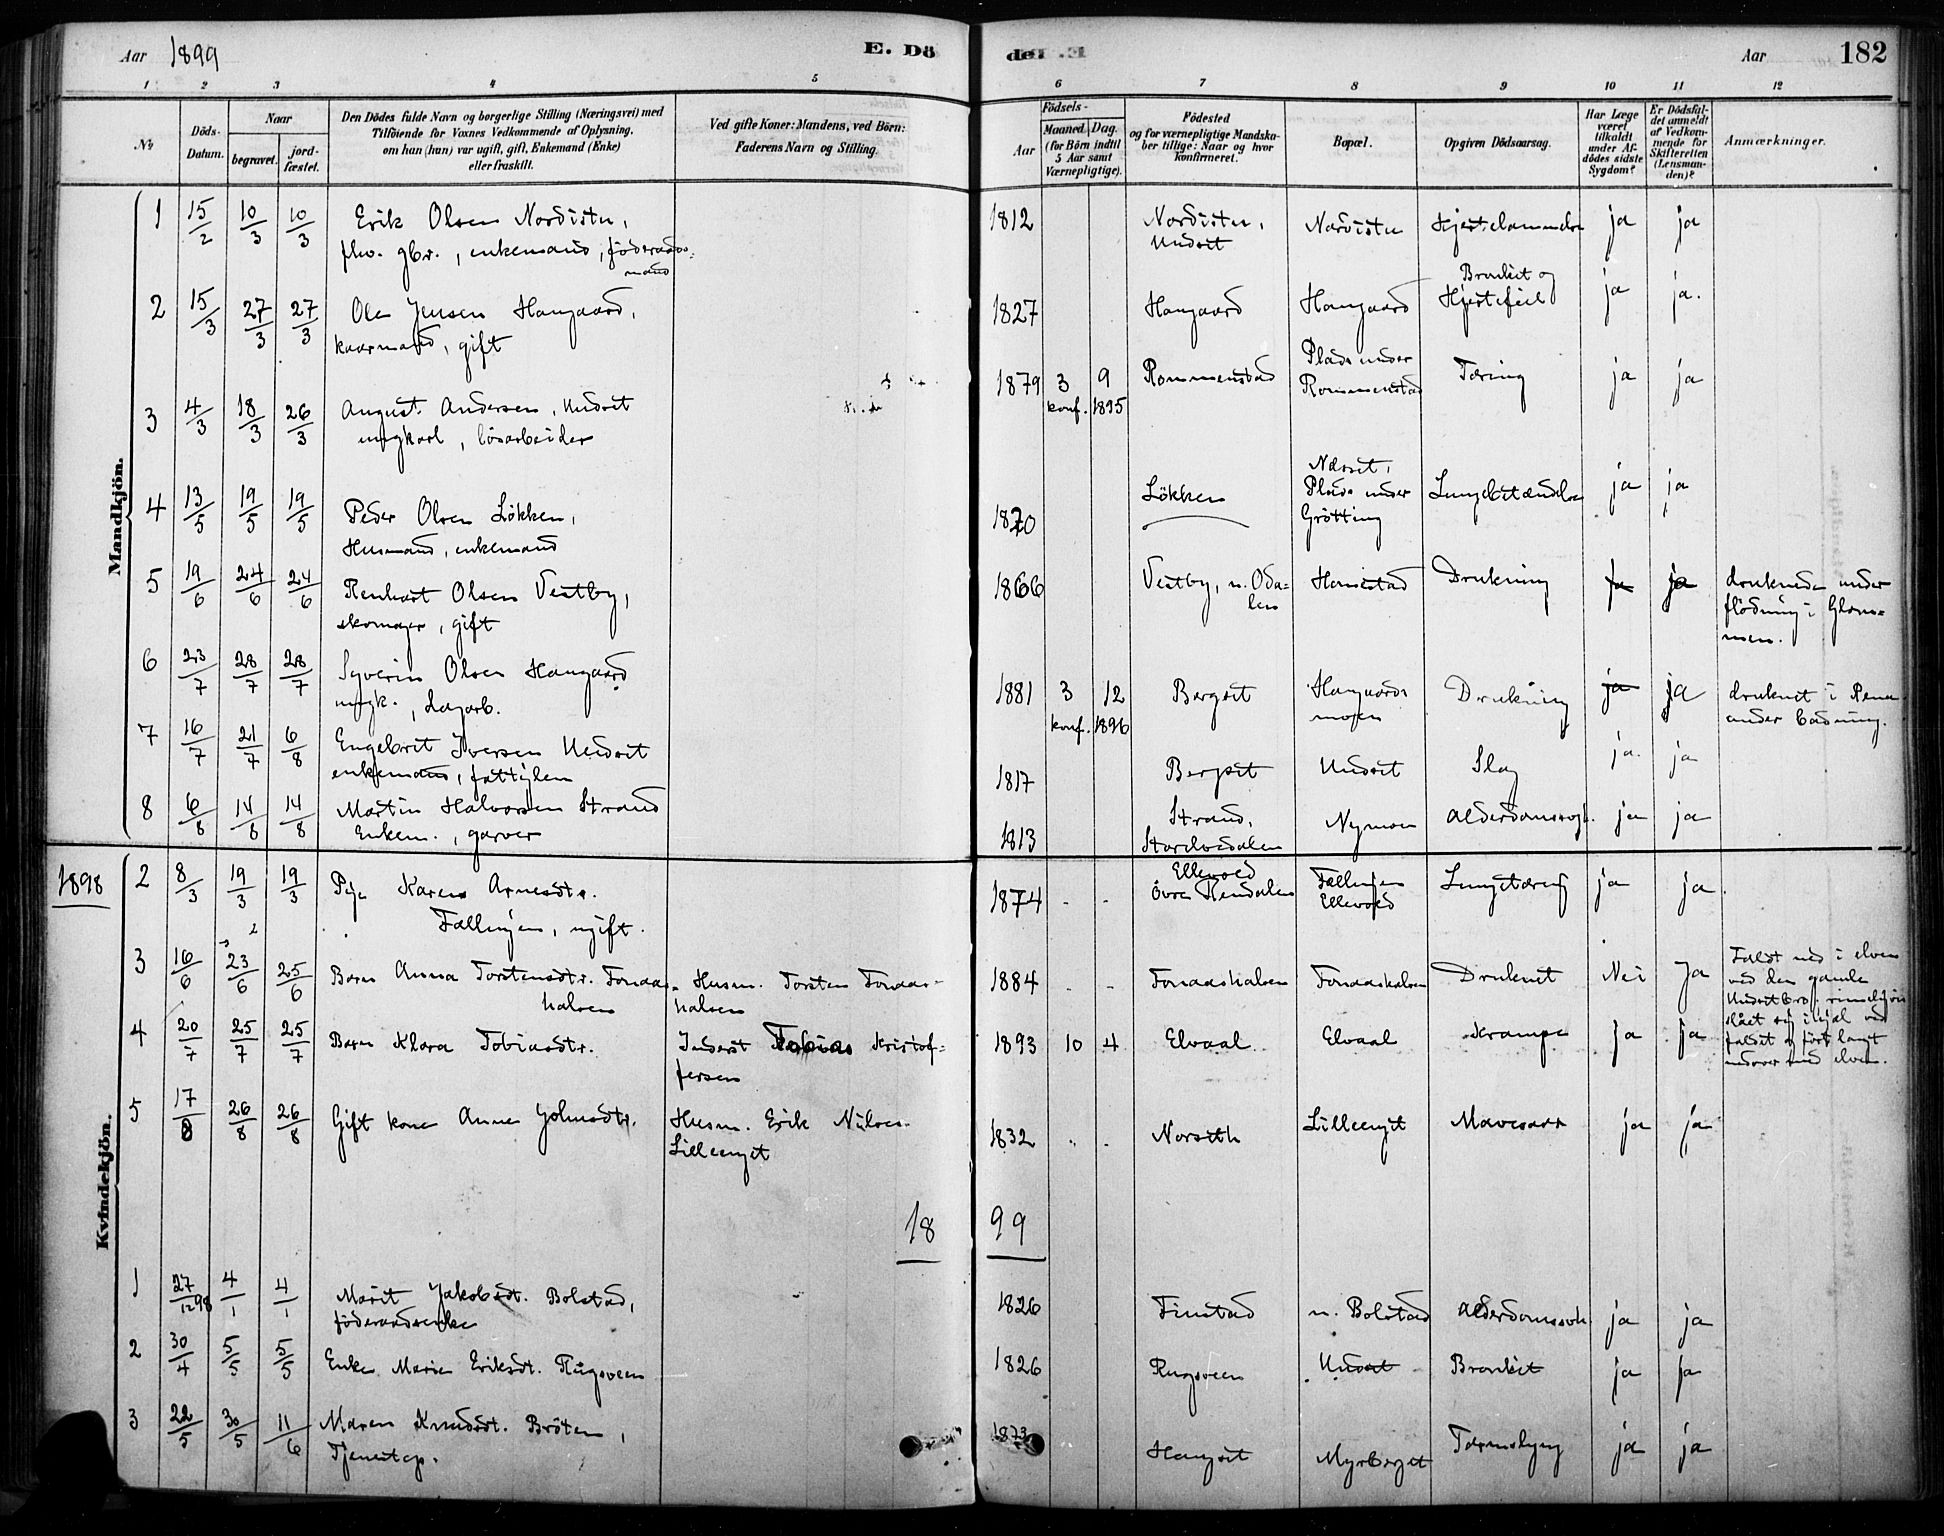 Aar 1899
E. Dö
de E.
Aar 182
1 2 3 4 5 6 7 8 9 10 11 12
No
Döds-Datum.
Naar
begravet.
jord-fæstet.
Den Dödes fulde Navn og borgerlige Stilling (Næringsvei) med
Tilföiende for Voxnes Vedkommende af Oplysning,
om han (hun) var ugift, gift, Enkemand (Enke)
eller fraskilt.
Ved gifte Koner: Mandens, ved Börn:
Faderens Navn og Stilling.
Födsels-
Aar
Maaned. Dag.
(for Börn indtil
5 Aar samt
Værnepligtige).
Födested
og for værnepligtige Mandska-
ber tillige: Naar og hvor
konfirmeret.
Bopæl.
Opgiven Dödsaarsag.
Har Læge
været
tilkaldt
under Af-
dödes sidste
Sygdom?
Er Dödsfal-
det anmeldt
af Vedkom-
mende for
Skifteretten
(Lensman-
den)?
Anmærkninger.
Mandkjön.
1 15/2 10/3 10/3 Erik Olsen Nordistu, 1812 Nordistu, Nordistu ja ja
fhv. gbr., enkemand, föderaads- Undset
mand
2 15/3 27/3 27/3 Ole Jensen Haugaard, 1827 Haugaard Haugaard Bronkit og Hjertefeil ja ja.
kaarmand, gift
3 4/3 18/3 26/3 August Andersen, Undset 1879 3 9 Rommenstad Plads under Tæring ja ja
ungkarl, lösarbeider konf. 1895 Rommenstad
4 13/5 19/5 19/5 Peder Olsen Lökken, 1820 Lökken Plads under ja ja
Husmand, enkemand Grötting
5 19/6 24/6 24/6 Renhart Olsen Vestby, 1866 Vestby, n. Oda- Drukning ja ja druknede under
skomager, gift len flödning i Glom-
men.
6 23/7 28/7 28/7 Syverin Olsen Haugaard 1881 3 12 Bergset Haugaards Drukning ja ja druknet i Rena
ungk., dagarb. konf. 1896 moen under badning.
7 16/7 21/7 6/8 Engebret Iversen Undset 1817 Bergset Undset Slag ja ja
enkemand, fattiglem
8 6/8 14/8 14/8 Martin Halvorsen Strand 1813 Strand, Nymoen Alderdomssvgh. ja ja
Enkem., garver Storelvedalen
1898
Kvindekjön.
2 8/3 19/3 19/3 Pige Karen Arnesdtr. 1874 - - Ellevold Fællingen Lungetæring ja ja.
Fællingen, ugift. Övre Rendalen Ellevold
3 16/6 23/6 25/6 Barn Anna Torstensdtr. Fonaas- Husm. Torsten Fonaas- 1884 - - Fonaashalsen Fonaashalsen Druknet Nei Ja Faldt ned i elven
halsen halsen ved den gamle
Undsetbro, rimeligvis
slået sig ihjel ved
faldet og fört langt
nedover med elven.
4 20/7 25/7 25/7 Barn Klara Tobiasdtr. Inderst Tobias Kristof- 1893 10 4 Elvaal Elvaal Krampe Ja Ja
fersen
5 17/8 26/8 26/8 Gift kone Anne Johnsdtr. Husm. Erik Nilsen 1832 - - Lilleenget Mavesaar ja ja
Lilleenget
18 99
1 27/12 98 4/1 4/1 Marit Jakobsdt. Bolstad, 1826 Finstad n. Bolstad Alderdomssvh. ja ja
föderaadsenke
2 30/4 5/5 5/5 Enke Marie Eriksdt. Rugsveen 1826 Rugsveen Undset Bronkit ja ja
3 22/5 30/5 11/6 Maren Knudsdt. Bröten, 1873 Haugset Myrberget Tarmslyng ja ja
Tjenestep.